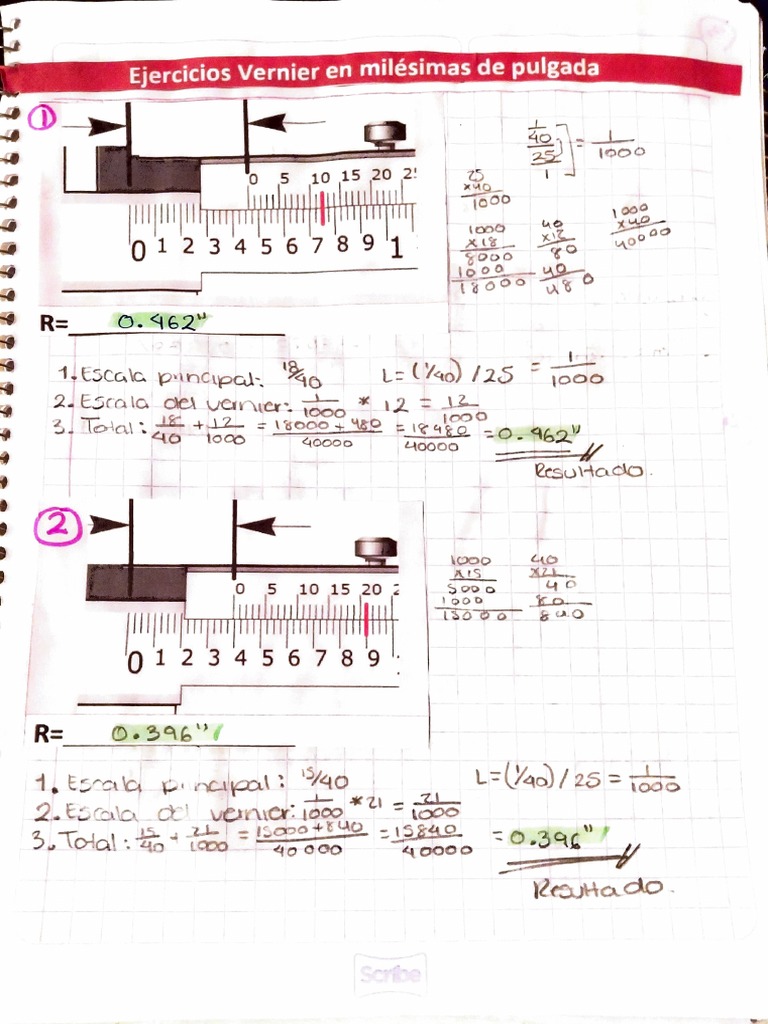 Ejercicios Vernier en milésimas de pulgada
1
0 5 10 15 20 2
0 1 2 3 4 5 6 7 8 9 1
1/40 / 25/1 = 1/1000
25
x40
1000
1000
x18
8000
1000
18000
40
x12
80
40
480
1000
x40
40000
R= 0.462"
1. Escala principal: 18/40 L= (1/40) / 25 = 1/1000
2. Escala del vernier: 1/1000 * 12 = 12/1000
3. Total: 18/40 + 12/1000 = 18000 + 480/40000 = 18480/40000 = 0.462"
Resultado.
2
0 5 10 15 20 2
0 1 2 3 4 5 6 7 8 9
1000
x15
5000
1000
15000
40
x21
40
80
840
R= 0.396"
1. Escala principal: 15/40 L= (1/40) / 25 = 1/1000
2. Escala del vernier: 1/1000 * 21 = 21/1000
3. Total: 15/40 + 21/1000 = 15000 + 840/40000 = 15840/40000 = 0.396"
Resultado.
Scribe